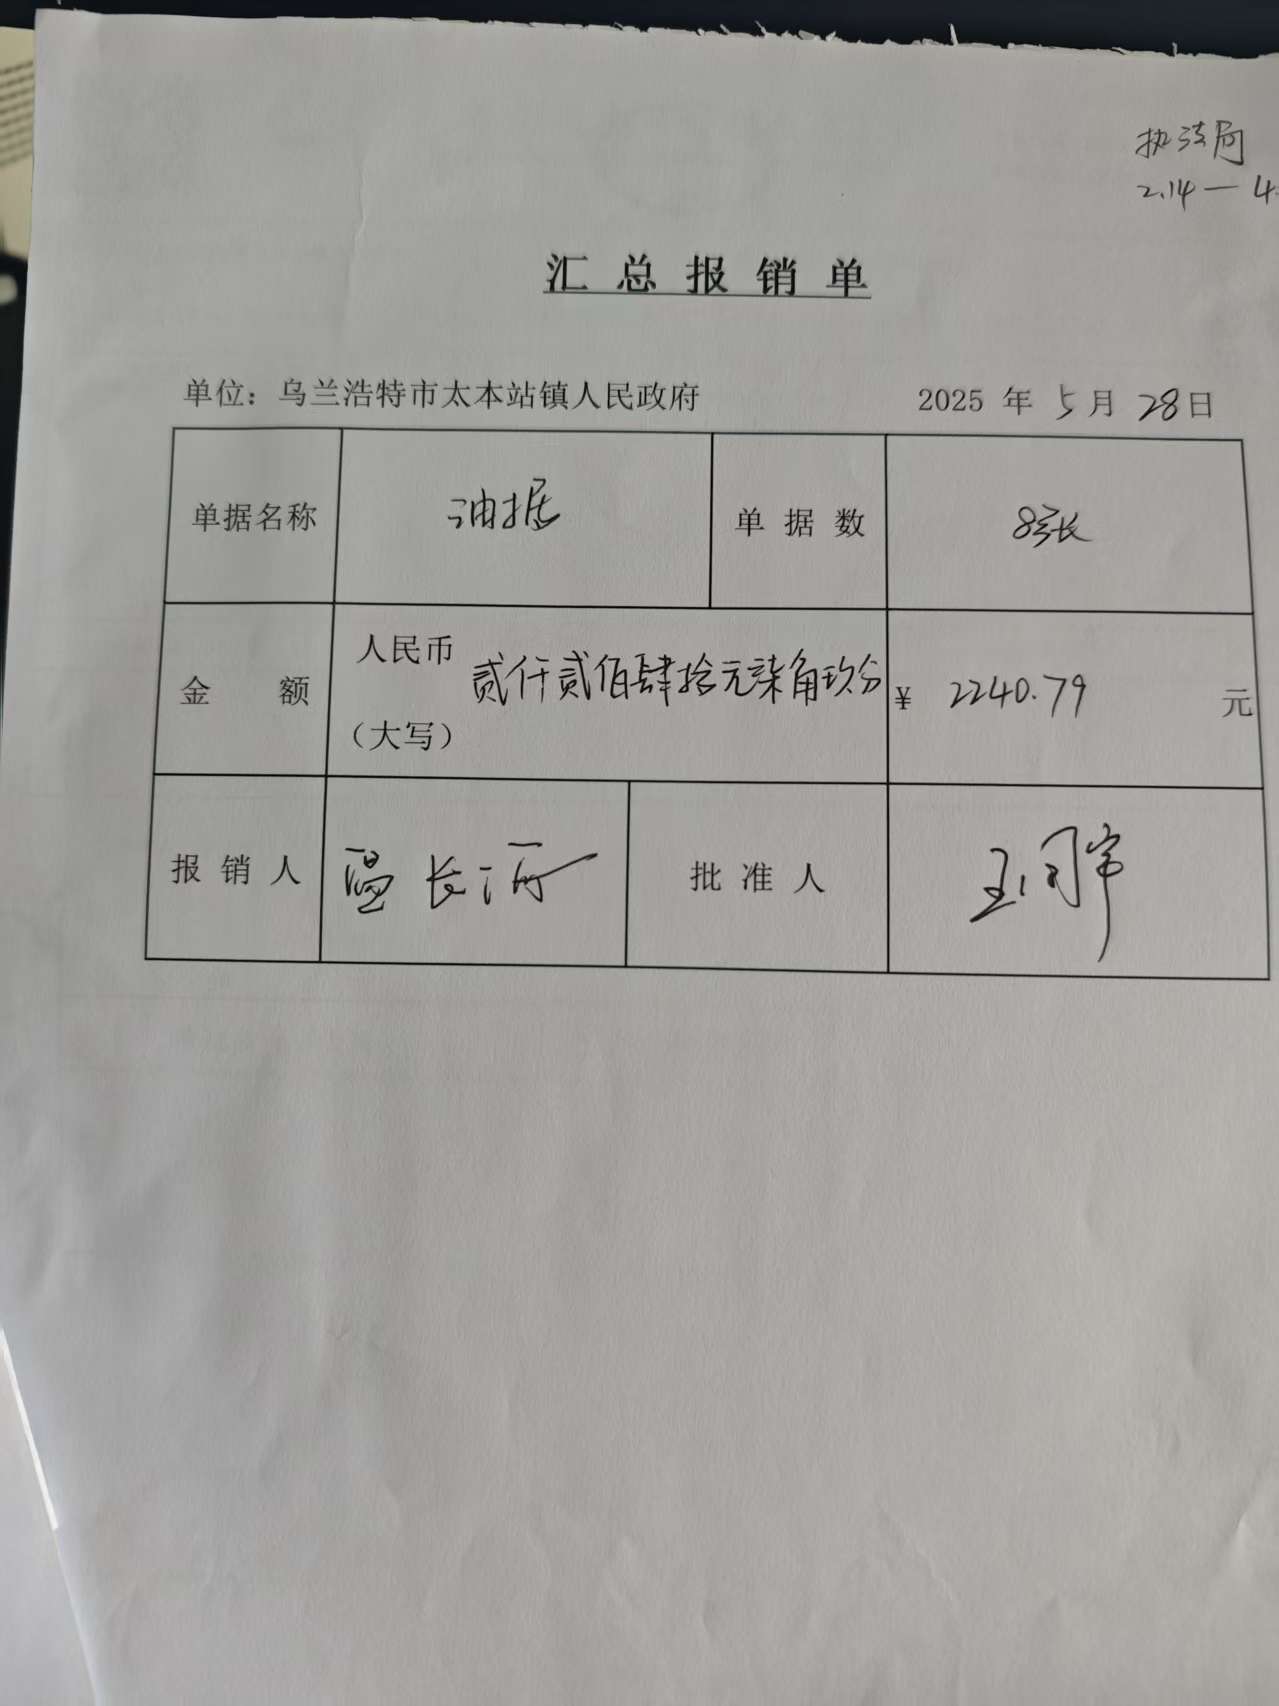 执法局
2.14 — 4.
汇总报销单
单位：乌兰浩特市太本站镇人民政府 2025 年 5 月 28 日
单据名称 油据 单据数 8张
金额 人民币（大写） 贰仟贰佰肆拾元柒角玖分 ¥ 2240.79 元
报销人 温长海 批准人 王